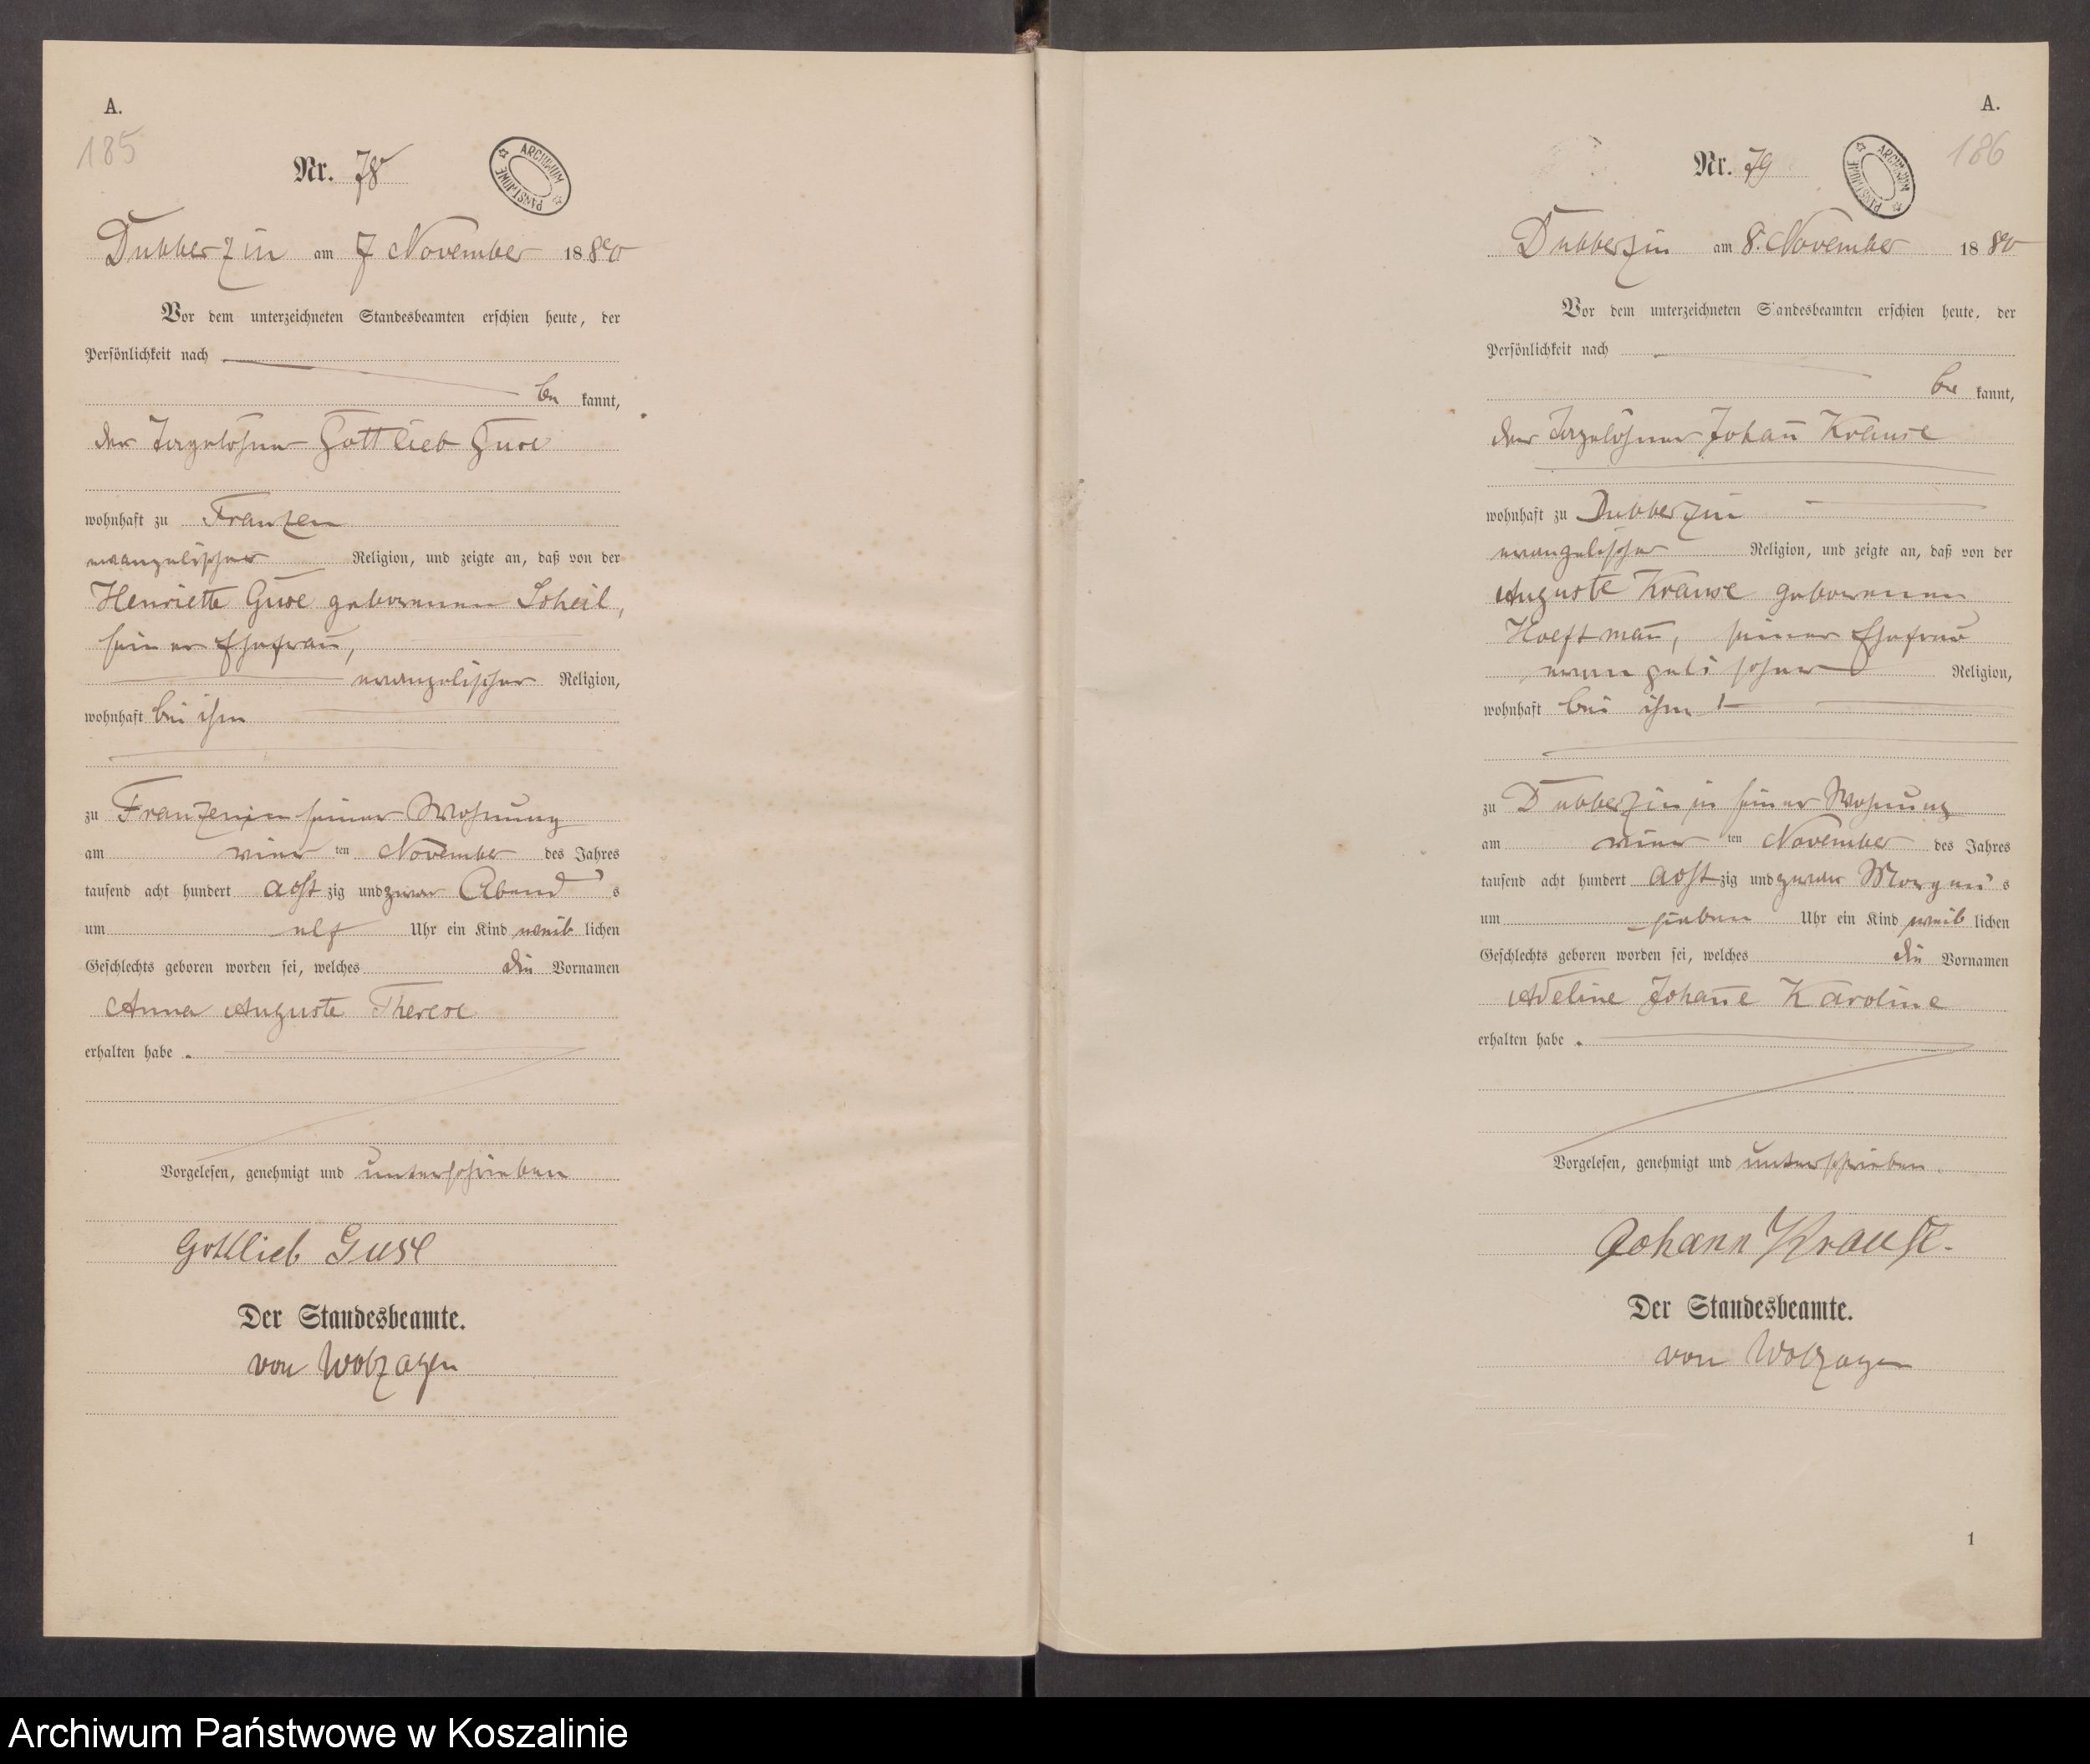 A.
185
Nr. 78
ARCHIWUM PAŃSTWOWE
Dubberzin am 7 November 1880
Vor dem unterzeichneten Standesbeamten erschien heute, der
Persönlichkeit nach
be kannt,
der Tagelöhner Gottlieb Guse
wohnhaft zu Franzen
evangelischer Religion, und zeigte an, daß von der
Henriette Guse geborenen Scheil,
seiner Ehefrau,
evangelischer Religion,
wohnhaft bei ihm
zu Franzen in seiner Wohnung
am vier ten November des Jahres
tausend acht hundert acht zig und zwar Abend s
um elf Uhr ein Kind weib lichen
Geschlechts geboren worden sei, welches die Vornamen
Anna Auguste Therese
erhalten habe.
Vorgelesen, genehmigt und unterschrieben
Gottlieb Guse
Der Standesbeamte.
von Wolzogen
A.
186
Nr. 79
ARCHIWUM PAŃSTWOWE
Dubberzin am 8. November 1880
Vor dem unterzeichneten Standesbeamten erschien heute, der
Persönlichkeit nach
be kannt,
der Tagelöhner Johann Krause
wohnhaft zu Dubberzin
evangelischer Religion, und zeigte an, daß von der
Auguste Krause geborenen
seiner Ehefrau
evangelischer Religion,
wohnhaft bei ihm
zu Dubberzin in seiner Wohnung
am vier ten November des Jahres
tausend acht hundert acht zig und zwar Morgens
um sieben Uhr ein Kind weib lichen
Geschlechts geboren worden sei, welches die Vornamen
Adeline Johanne Karoline
erhalten habe.
Vorgelesen, genehmigt und unterschrieben.
Johann Krause.
Der Standesbeamte.
von Wolzogen
1
Archiwum Państwowe w Koszalinie